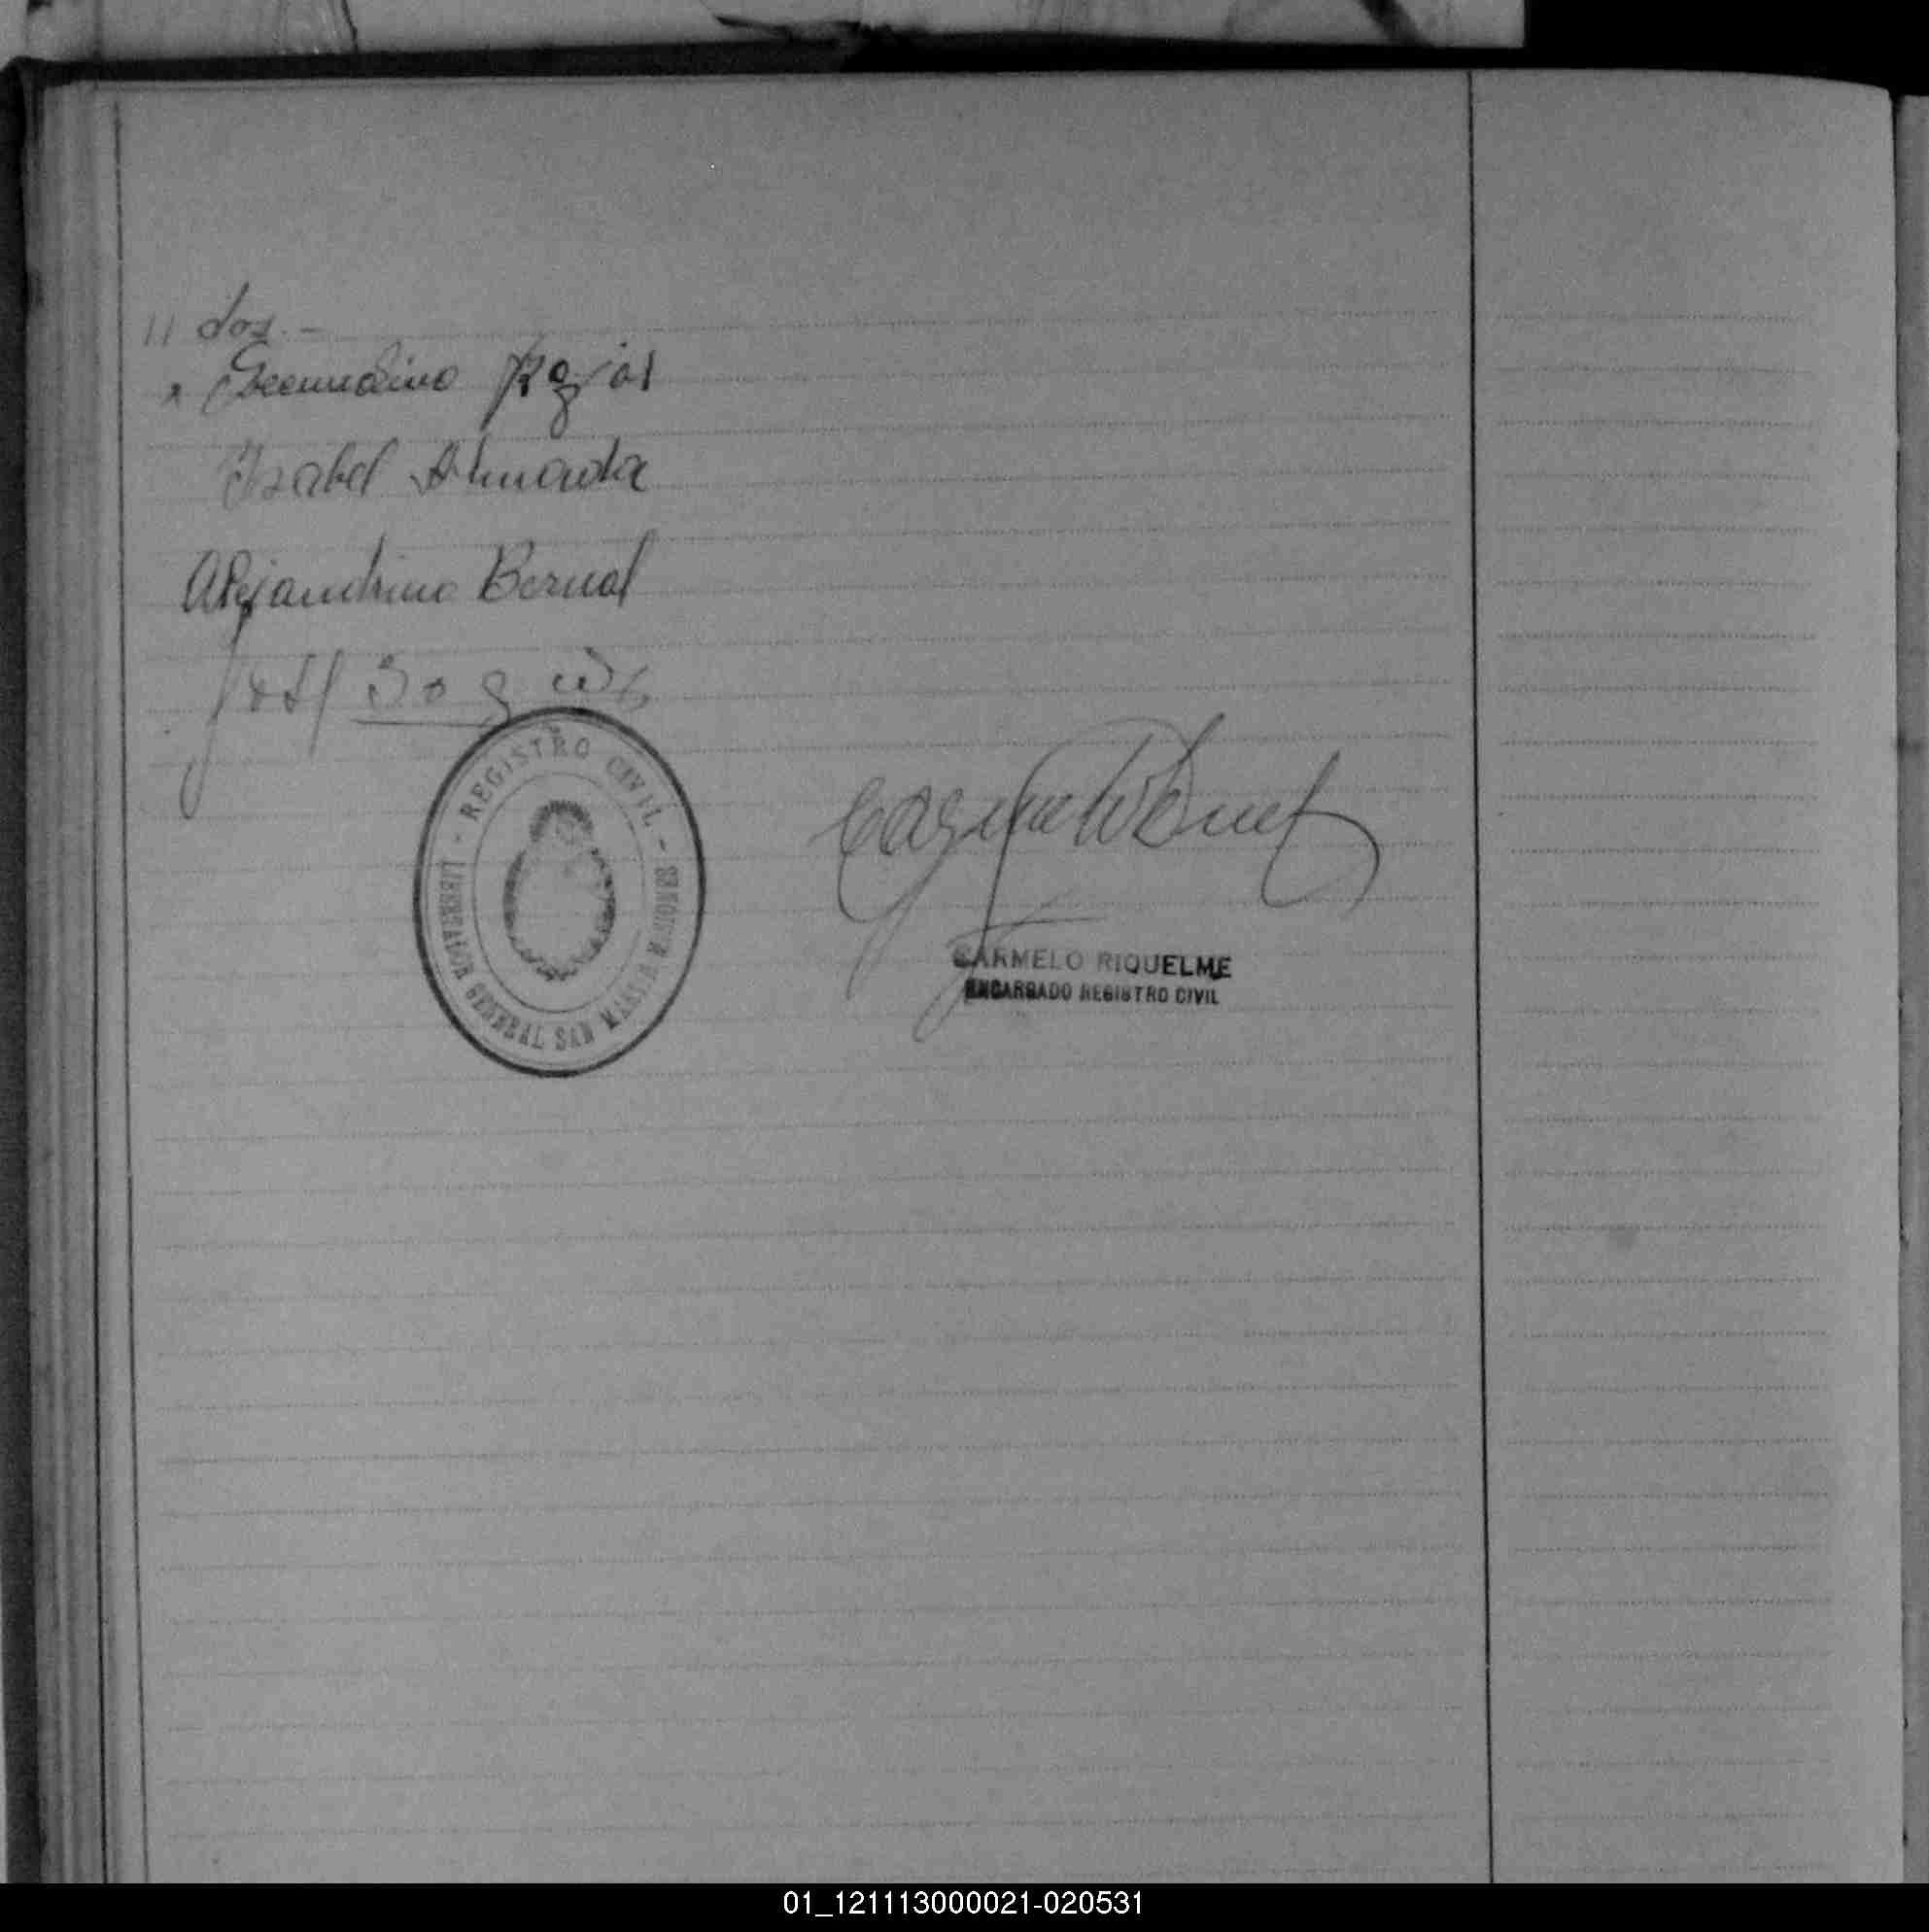 11 dos. -
Secundino Rojas
Isabel Almada
Alejandrino Bernal
- REGISTRO CIVIL -
LIBERADOR GENERAL SAN MARTIN MISIONES
CARMELO RIQUELME
ENCARGADO REGISTRO CIVIL
01_121113000021-020531